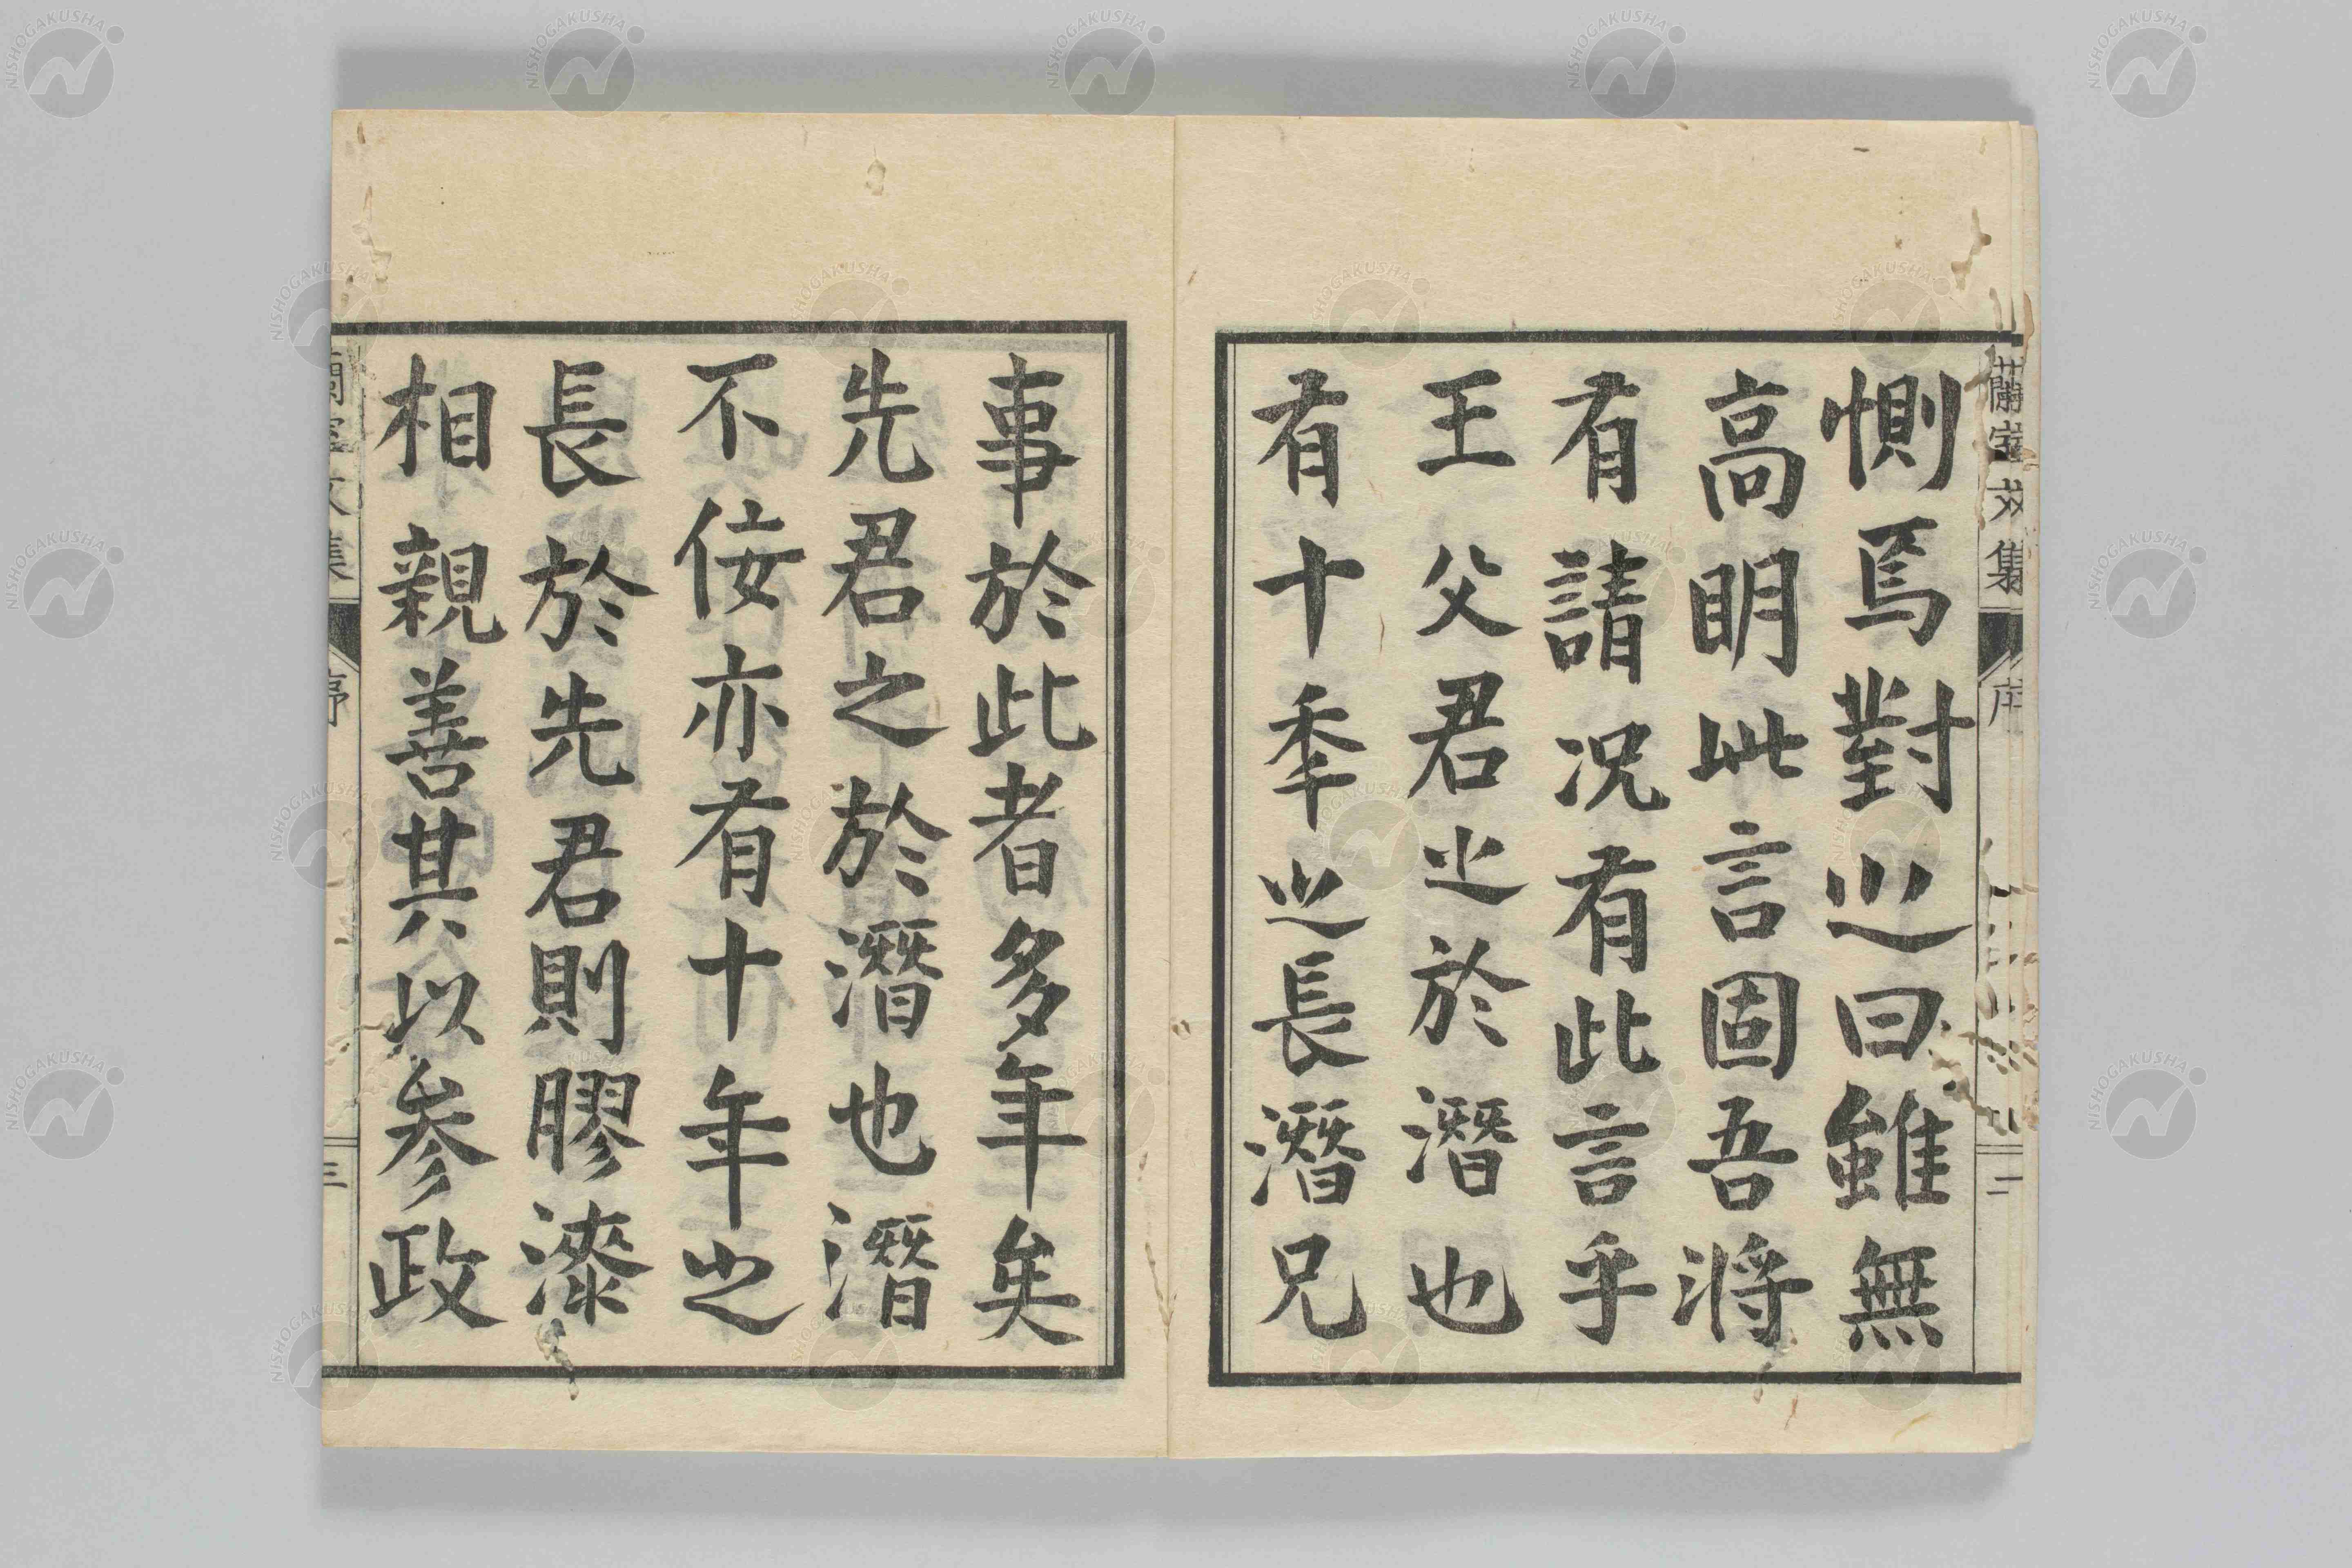 惻焉對㞢曰雖無
高明此言固吾將
有請况有此言乎
王父君㞢於潛也
有十秊㞢長潛兄
事於此者多年矣
先君之於潛也潛
不佞亦有十年之
長於先君則膠漆
相親善其以参政
序
二
序
三
NISHOGAKUSHA